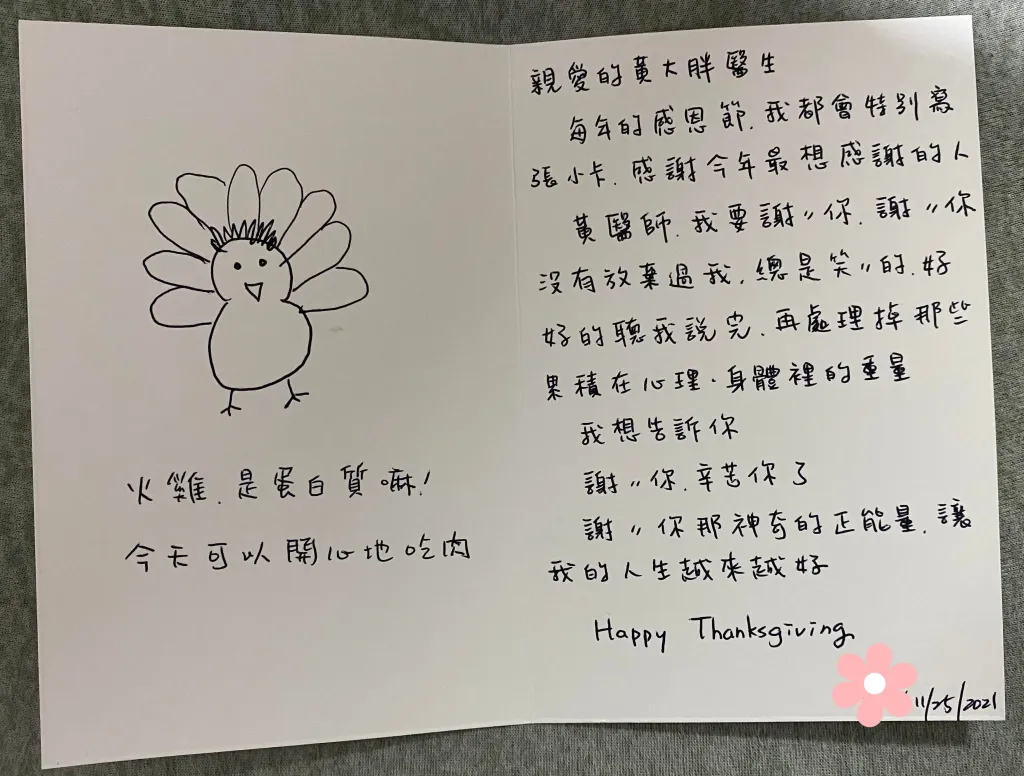 火雞.是蛋白質嘛!
今天可以開心地吃肉
親愛的黃大胖醫生
每年的感恩節.我都會特別寫
張小卡.感謝今年最想感謝的人
黃醫師.我要謝〃你.謝〃你
沒有放棄過我.總是笑〃的.好
好的聽我說完.再處理掉那些
累積在心理.身體裡的重量
我想告訴你
謝〃你.辛苦你了
謝〃你那神奇的正能量.讓
我的人生越來越好
Happy Thanksgiving
11/25/2021